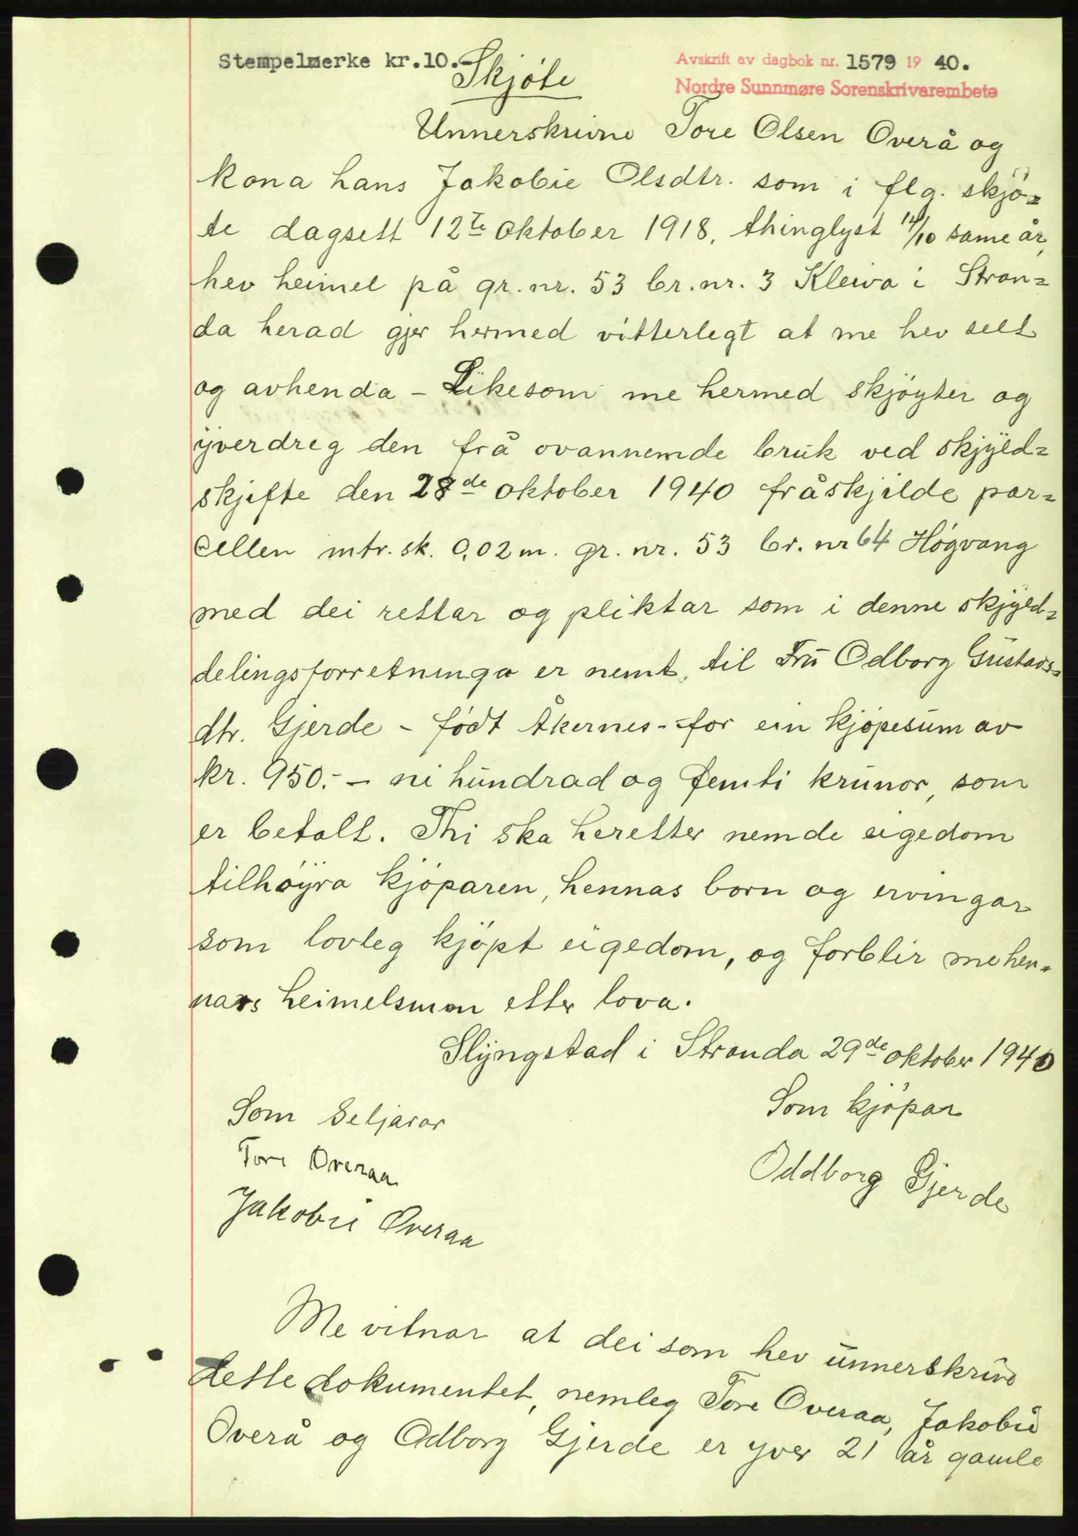 Stempelmerke kr.10.-
Avskrift av dagbok nr. 1579 19 40.
Nordre Sunnmøre Sorenskrivarembete
Skjøte
Unnerskrivne Tore Olsen Overå og
kona hans Jakobie Olsdtr. som i flg. skjø=
te dagsett 12te oktober 1918, thinglyst 14/10 same år,
hev heimel på gr. nr. 53 br. nr. 3 Kleiva i Stran=
da herad gjer hermed vitterlegt at me hev selt
og avhenda - Likesom me hermed skjøyter og
yverdreg den frå ovannemde bruk ved skjyld=
skifte den 28de oktober 1940 fråskjilde par=
cellen mtr. sk. 0,02 m. gr. nr. 53 br. nr 64 Høgvang
med dei rettar og pliktar som i denne skjyld=
delingsforretninga er nemt, til Frü Odborg Gustavs=
dtr. Gjerde - født Åkernes - for ein kjøpesum av
kr. 950.- - ni hundrad og femti krunor, som
er betalt. Thi ska heretter nemde eigedom
tilhøyra kjøparen, hennas born og ervingar
som lovleg kjøpt eigedom, og forblir me hen=
nars heimelsmen etter lova.
Slyngstad i Stranda 29de oktober 1940
Som Seljarar
Som kjøpar
Tore Overaa
Oddborg Gjerde
Jakobie Overaa
Me vitnar at dei som hev unnerskrive
dette dokumentet, nemleg Tore Overaa, Jakobie
Overå og Odborg Gjerde er yver 21 år gamle